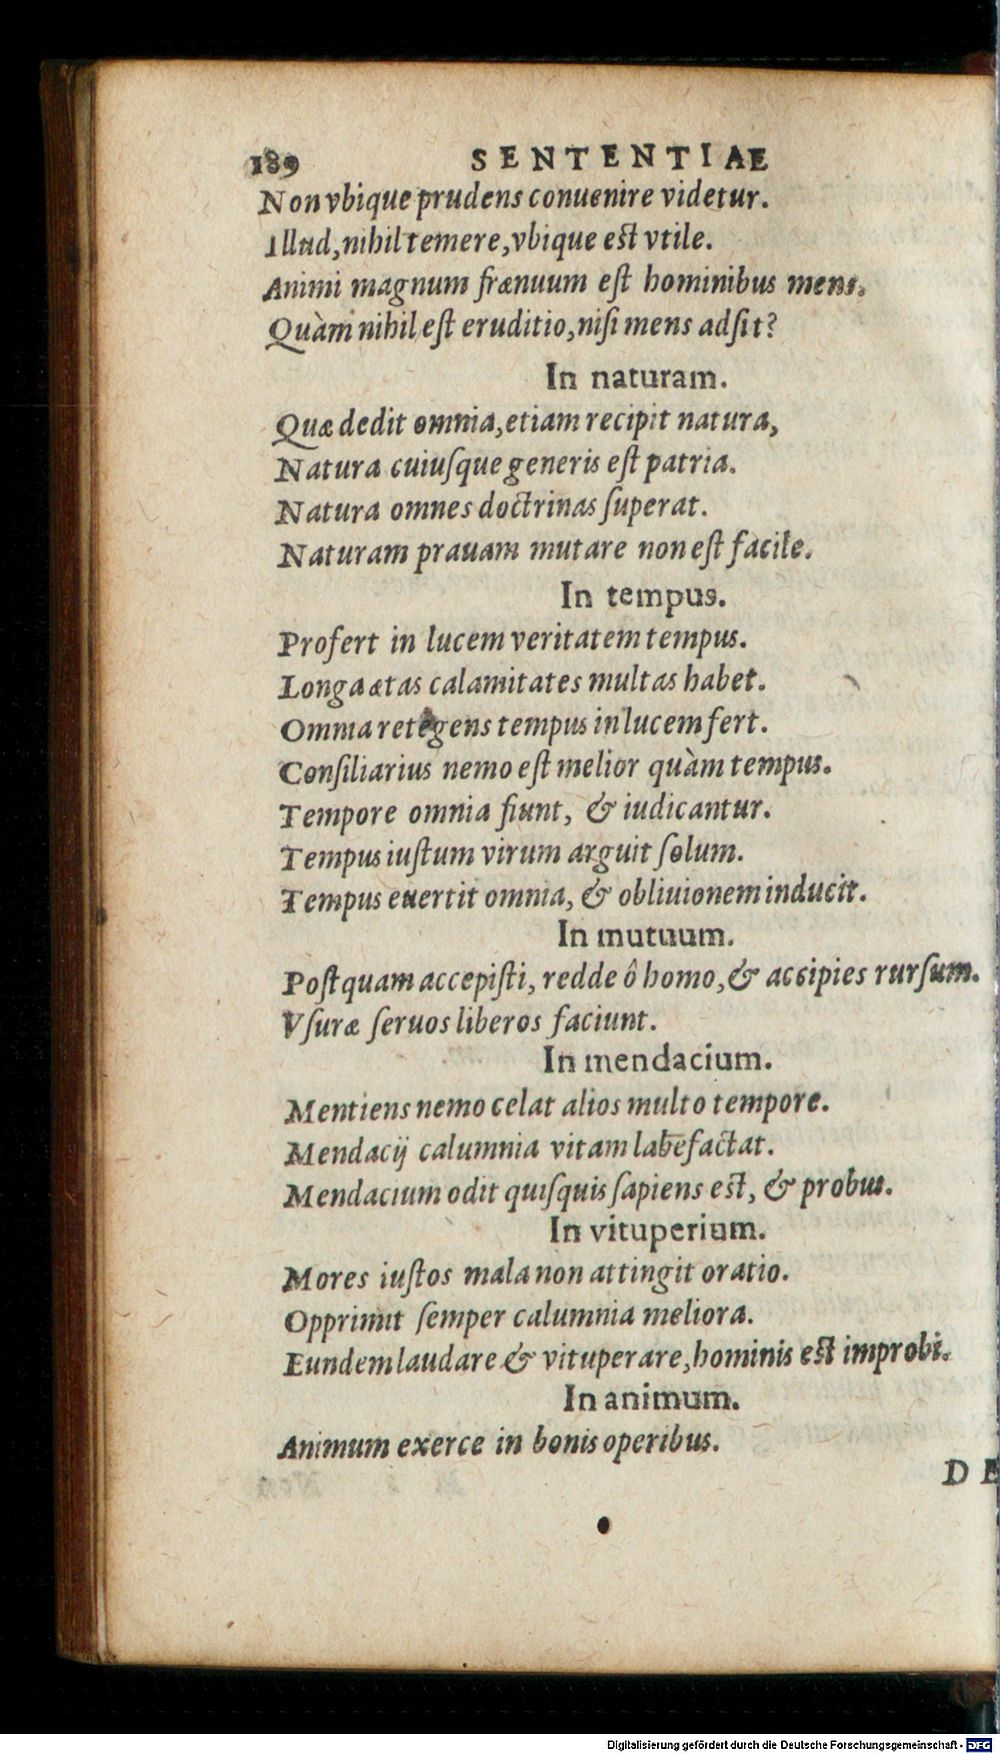 189 SENTENTIAE
Non vbique prudens conuenire videtur.
Illud, nihil temere, vbique est vtile.
Animi magnum frænuum eſt hominibus mens.
Quàm nihil eſt eruditio, niſi mens adſit?
In naturam.
Quæ dedit omnia, etiam recipit natura,
Natura cuiuſque generis eſt patria.
Natura omnes doctrinas ſuperat.
Naturam prauam mutare non eſt facile.
In tempus.
Profert in lucem veritatem tempus.
Longa ætas calamitates multas habet.
Omnia retegens tempus in lucem fert.
Conſiliarius nemo eſt melior quàm tempus.
Tempore omnia fiunt, & iudicantur.
Tempus iuſtum virum arguit ſolum.
Tempus euertit omnia, & obliuionem inducit.
In mutuum.
Poſtquam accepiſti, redde ô homo, & accipies rurſum.
Vſuræ ſeruos liberos faciunt.
In mendacium.
Mentiens nemo celat alios multo tempore.
Mendacij calumnia vitam labefactat.
Mendacium odit quiſquis ſapiens est, & probus.
In vituperium.
Mores iuſtos mala non attingit oratio.
Opprimit ſemper calumnia meliora.
Eundem laudare & vituperare, hominis est improbi.
In animum.
Animum exerce in bonis operibus.
DE
Digitalisierung gefördert durch die Deutsche Forschungsgemeinschaft - DFG